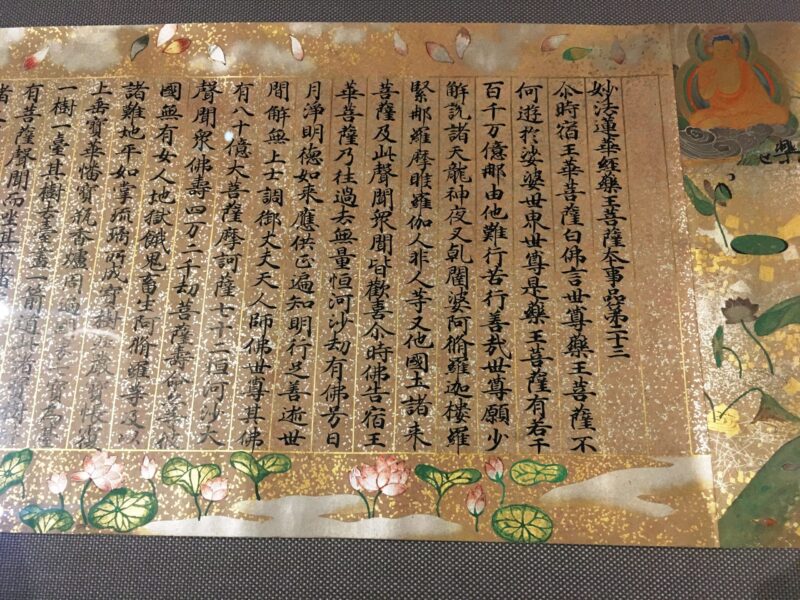 妙法蓮華経藥王菩薩本事品第二十三
尒時宿王華菩薩白佛言世尊藥王菩薩云
何遊於娑婆世界世尊是藥王菩薩有若干
百千万億那由他難行苦行善哉世尊願少
解說諸天龍神夜叉乹闥婆阿脩羅迦樓羅
緊那羅摩睺羅伽人非人等又他國土諸来
菩薩及此聲聞衆聞皆歡喜尒時佛告宿王
華菩薩乃往過去無量恒河沙劫有佛号日
月淨明徳如来應供正遍知明行足善逝世
間解無上士調御丈夫天人師佛世尊其佛
有八十億大菩薩摩訶薩七十二恒河沙大
聲聞衆佛壽四万二千劫菩薩壽命亦等彼
國無有女人地獄餓鬼畜生阿脩羅等及以
諸難地平如掌琉璃所成寶樹莊嚴寶帳覆
上垂寶華幡寶瓶香爐周遍國界七寶為臺
一樹一臺其樹去臺盡一箭道此諸寶樹皆
有菩薩聲聞而坐其下諸